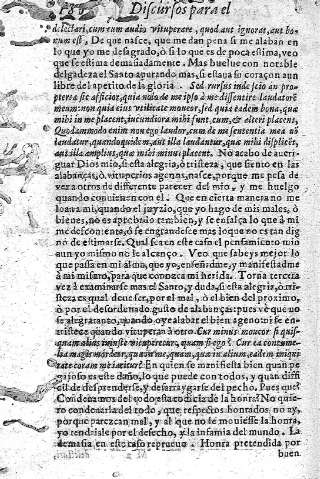 Discursos para el
delectari, cum eum audio vituperare, quod aut ignorat, aut bo
num est, De que nasce, que me dan pena si me alaban en
lo que yo me desagrado, o si lo que es de poca estima, veo
que se estima demasiadamente. Mas buelue con notable
delgadeza el Santo apurando mas, si estaua su coraçon aun
libre del apetito de la gloria. Sed rursus inde scio an pro-
pterea sic afficior, quia nolo de me ipso à me dissentire laudatorē
meum: non quia eius vtilitate moueor, sed quia eadem bona, quæ
mihi in me placent, iucundiora mihi sunt, cum, & alteri placent,
Quodammodo enim non ego laudor, cum de me sententia mea nō
laudatur, quandoquidem, aut illa laudantur, quæ mihi displicēt,
aut illa amplius, quæ mihi minus placent. No acabo de aueri-
guar Dios mio, si esta alegria, ò tristeza, que siento en las
alabanças, ò vituperios agenos, nasce, porque me pesa de
ver a otros de differente parecer del mio, y me huelgo
quando conuienen con el. Que en cierta manera no me
loara mi, quando el juyzio, que yo hago de mis males, ò
bienes, no es aprobado tambien, y se ensalça lo que à mi
me descontenta, ò se engrandesce mas lo que no es tan dig
no de estimarse. Qual sea en este caso el pensamiento mio
aun yo mismo no le alcanço. Veo que sabeys mejor lo
que passa en mi alma, que yo, enseñadme, y manifestadme
à mi mismo, para que conozca mi herida. Torna tercera
vez à examinarse mas el Santo, y duda, si esta alegria, ò tri-
steza es qual deue ser, por el mal, ò el bien del proximo,
ò por el desordenado gusto de alabanças: pues vè que no
se alegra tanto, quando oye alabar el bien ageno: ni se en-
tristece quando vituperan à otro. Cur minus moueor si quis-
quam alius iniuste vituperetur, quam si ego? Cur ea contume-
lia magis mordeor, quæ in me, quam, quæ in alium, eadem iniqui
tate coram me iacitur? En quien se manifiesta bien quan pe
gajoso es este daño, lo que puede con todos, y quan diffi
cil es de desprenderse, y desarraygarse del pecho. Pues que?
Condenamos del todo esta codicia de la honra? No quie-
ro condenarla del todo, que respectos honrados no ay,
porque parezcan mal, y al que no se mouiesse la honra,
yo tendriale por el desecho, y la infamia del mundo. La
demasia en este caso reprueuo. Honra pretendida por
buen